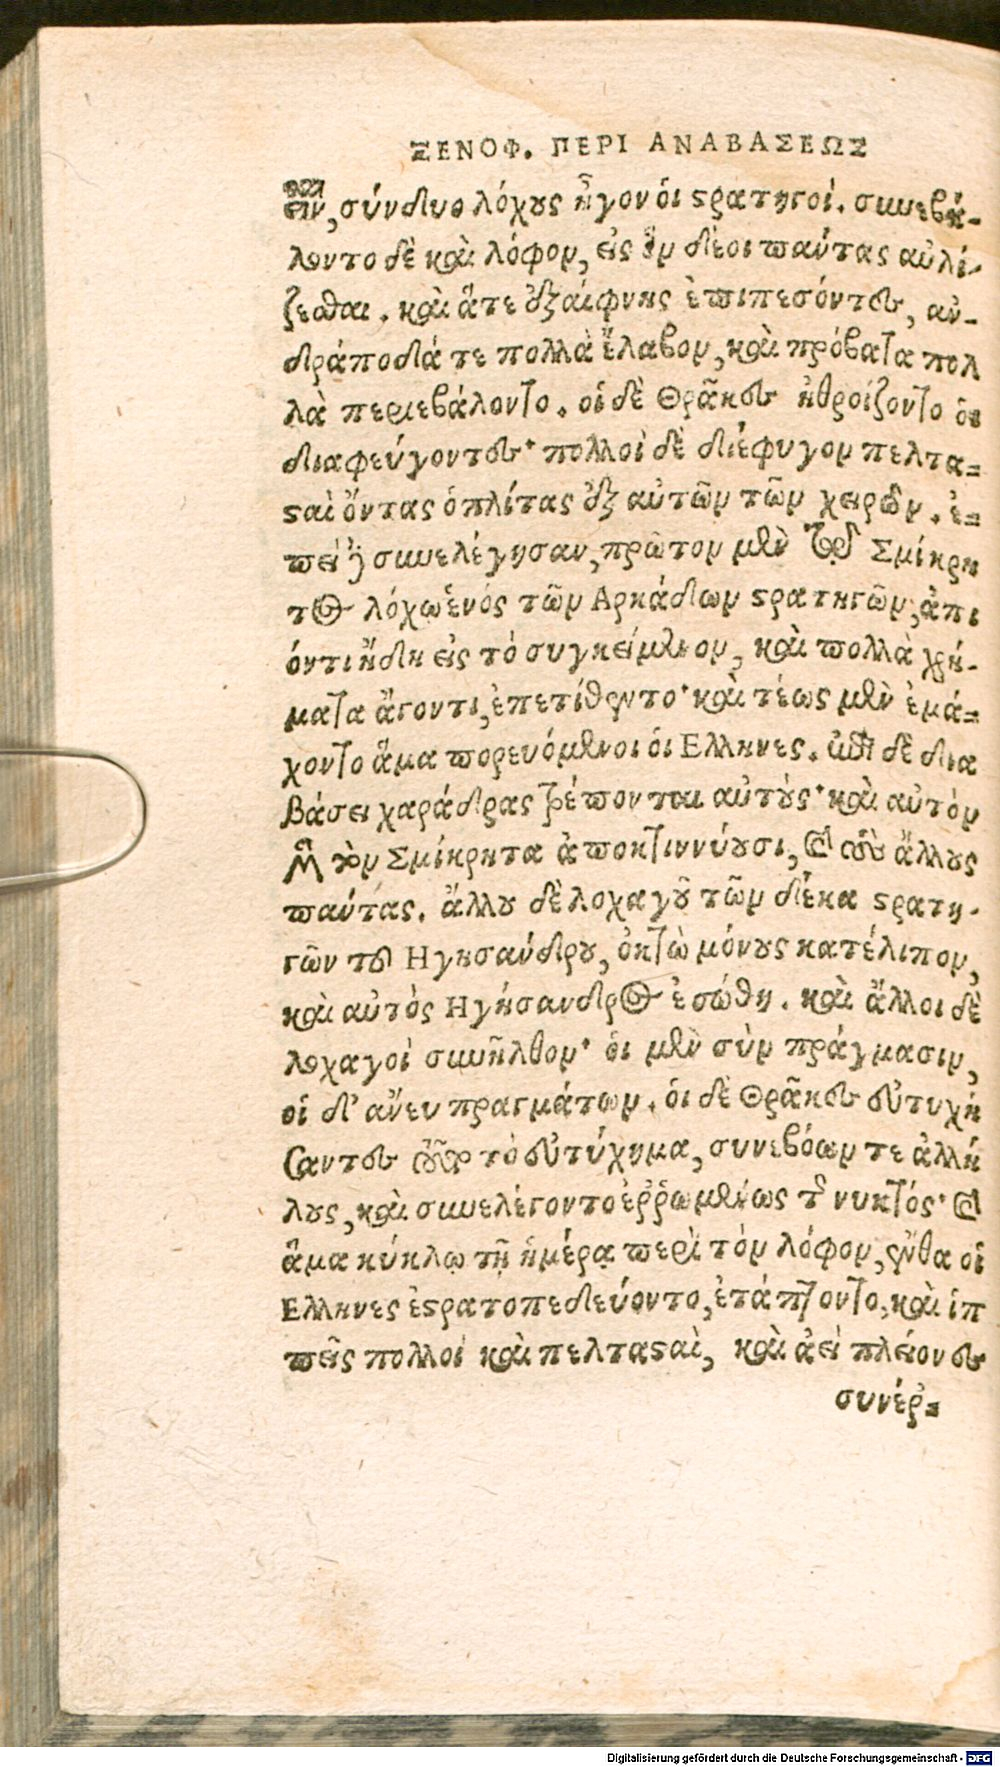 ΞΕΝΟΦ. ΠΕΡΙ ΑΝΑΒΑΣΕΩΣ
εῖν, σύνδυο λόχους ἦγον οἱ στρατηγοί. συνεβά-
λοντο δὲ καὶ λόφον, εἰς ὃν δέοι πάντας αὐλί-
ζεσθαι. καὶ ἅτε ἐξαίφνης ἐπιπεσόντες, ἀν-
δράποδά τε πολλὰ ἔλαβον, καὶ πρόβατα πολ
λὰ περιεβάλοντο. οἱ δὲ Θρᾶκες ἠθροίζοντο οἱ
διαφεύγοντες· πολλοὶ δὲ διέφυγον πελτα-
σταὶ ὄντας ὁπλίτας ἐξ αὐτῶν τῶν χειρῶν. ἐ-
πεὶ δὲ συνελέγησαν, πρῶτον μὲν τῷ Σμίκρη
τος λόχῳ ἑνός τῶν Αρκάδων στρατηγῶν, ἀπι
όντι ἤδη εἰς τὸ συγκείμενον, καὶ πολλὰ χρή-
ματα ἄγοντι, ἐπετίθεντο· καὶ τέως μὲν ἐμά-
χοντο ἅμα πορευόμενοι οἱ Ελληνες. ἐπὶ δὲ δια
βάσει χαράδρας τρέπονται αὐτούς· καὶ αὐτὸν
τε τὸν Σμίκρητα ἀποκτιννύουσι, καὶ τοὺς ἄλλους
πάντας. ἄλλου δὲ λοχαγοῦ τῶν δέκα στρατη-
γῶν τοῦ Ηγησάνδρου, ὀκτὼ μόνους κατέλιπον,
καὶ αὐτὸς Ηγήσανδρος ἐσώθη. καὶ ἄλλοι δὲ
λοχαγοὶ συνῆλθον· οἱ μὲν σὺν πράγμασιν,
οἱ δ' ἄνευ πραγμάτων. οἱ δὲ Θρᾶκες εὐτυχή
σαντες τοῦτο τὸ εὐτύχημα, συνεβόων τε ἀλλή
λους, καὶ συνελέγοντο ἐῤῥωμένως τῆς νυκτός· καὶ
ἅμα κύκλῳ τῇ ἡμέρᾳ περὶ τὸν λόφον, ἔνθα οἱ
Ελληνες ἐστρατοπεδεύοντο, ἐτάττοντο, καὶ ἱπ
πεῖς πολλοὶ καὶ πελτασταὶ, καὶ ἀεὶ πλείονες
συνέῤ-
Digitalisierung gefördert durch die Deutsche Forschungsgemeinschaft - DFG